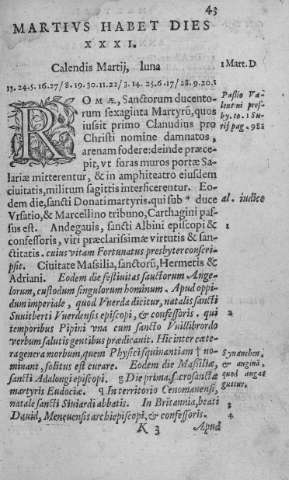 43
MARTIVS HABET DIES
XXXI.
Calendis Martij, luna
1 Mart. D
13. 24. 5. 16. 27/ 8. 19. 30. 11. 22/ 3. 14. 25. 6. 17/ 28. 9. 20. 1
ROMÆ, Sanctorum ducento-
rum sexaginta Martyrũ, quos
iussit primo Claudius pro
Christi nomine damnatos,
arenam fodere: deinde præce-
pit, vt foras muros portæ Sa-
lariæ mitterentur, & in amphiteatro eiusdem
ciuitatis, militum sagittis interficerentur. Eo-
dem die, sancti Donati martyris. qui sub duce
Vrsatio, & Marcellino tribuno, Carthagini pas-
sus est. Andegauis, sancti Albini episcopi &
confessoris, viri præclarissimæ virtutis & san-
ctitatis. cuius vitam Fortunatus presbyter conscri-
psit. Ciuitate Massilia, sanctorũ, Hermetis &
Adriani. Eodem die festiuitas sanctorum Ange-
lorum, custodum singulorum hominum. Apud oppi-
dum imperiale, quod Vuerda dicitur, natalis sancti
Suuitberti Vuerdensis episcopi, & confessoris. qui
temporibus Pipini vna cum sancto Vuillibrordo
verbum salutis gentibus prædicauit. Hic inter cæte-
ra genera morborum, quem Physici squinantiam no-
minant, solitus est curare. Eodem die Massiliæ,
sancti Adalongi episcopi. Die prima, sacrosanctæ
martyris Eudociæ. In territorio Cenomanensi,
natale sancti Siuiardi abbatis. In Britannia, beati
Dauid, Meneuensis archiepiscopi, & confessoris.
K 3 Apud
al. iudice
2
3
4